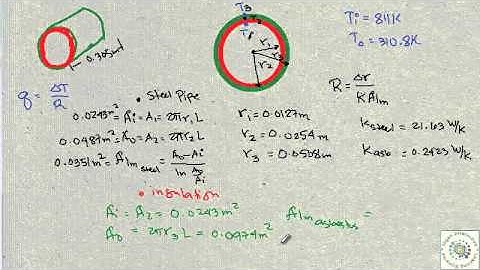 T3
r3
T1
r1
r2
r2
0.305m
Ti = 811K
To = 310.8K
q = ΔT/R
R = Δr/KAlm
• Steel Pipe
0.0243m² = Ai = A1 = 2πr1L
0.0487m² = Ao = A2 = 2πr2L
0.0351m² = Alm steel = Ao-Ai / ln Ao/Ai
r1 = 0.0127m
r2 = 0.0254m
r3 = 0.0508m
Ksteel = 21.63 W/K
Kasb = 0.2423 W/K
• insulation
Ai = A2 = 0.0243m²
Ao = 2πr3L = 0.0974m²
Alm asbestos =